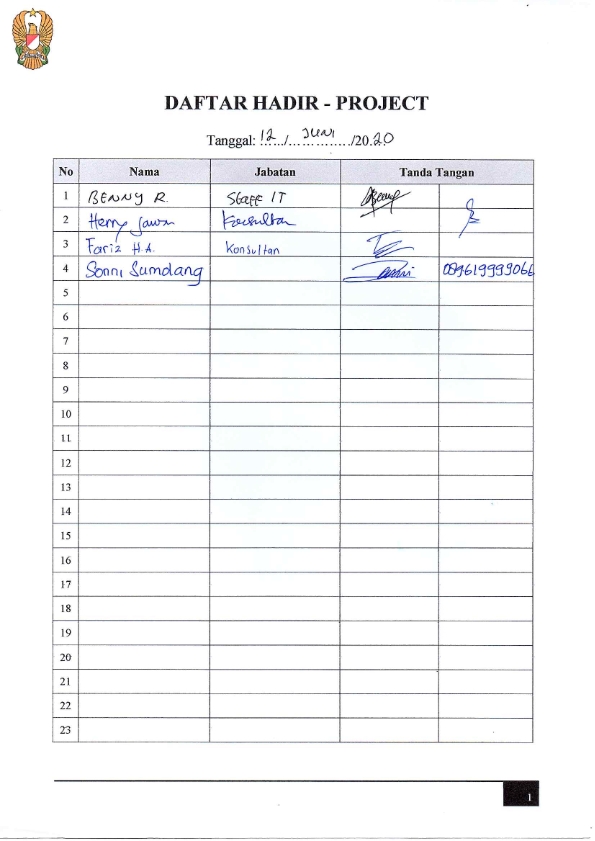 DAFTAR HADIR - PROJECT
Tanggal: 12 / JUNI /2020
No Nama Jabatan Tanda Tangan
1 BENNY R. Staff IT
2 Herry
3 Fariz H.A. Konsultan
4 Sonni Sumdang 089619999066
5
6
7
8
9
10
11
12
13
14
15
16
17
18
19
20
21
22
23
1